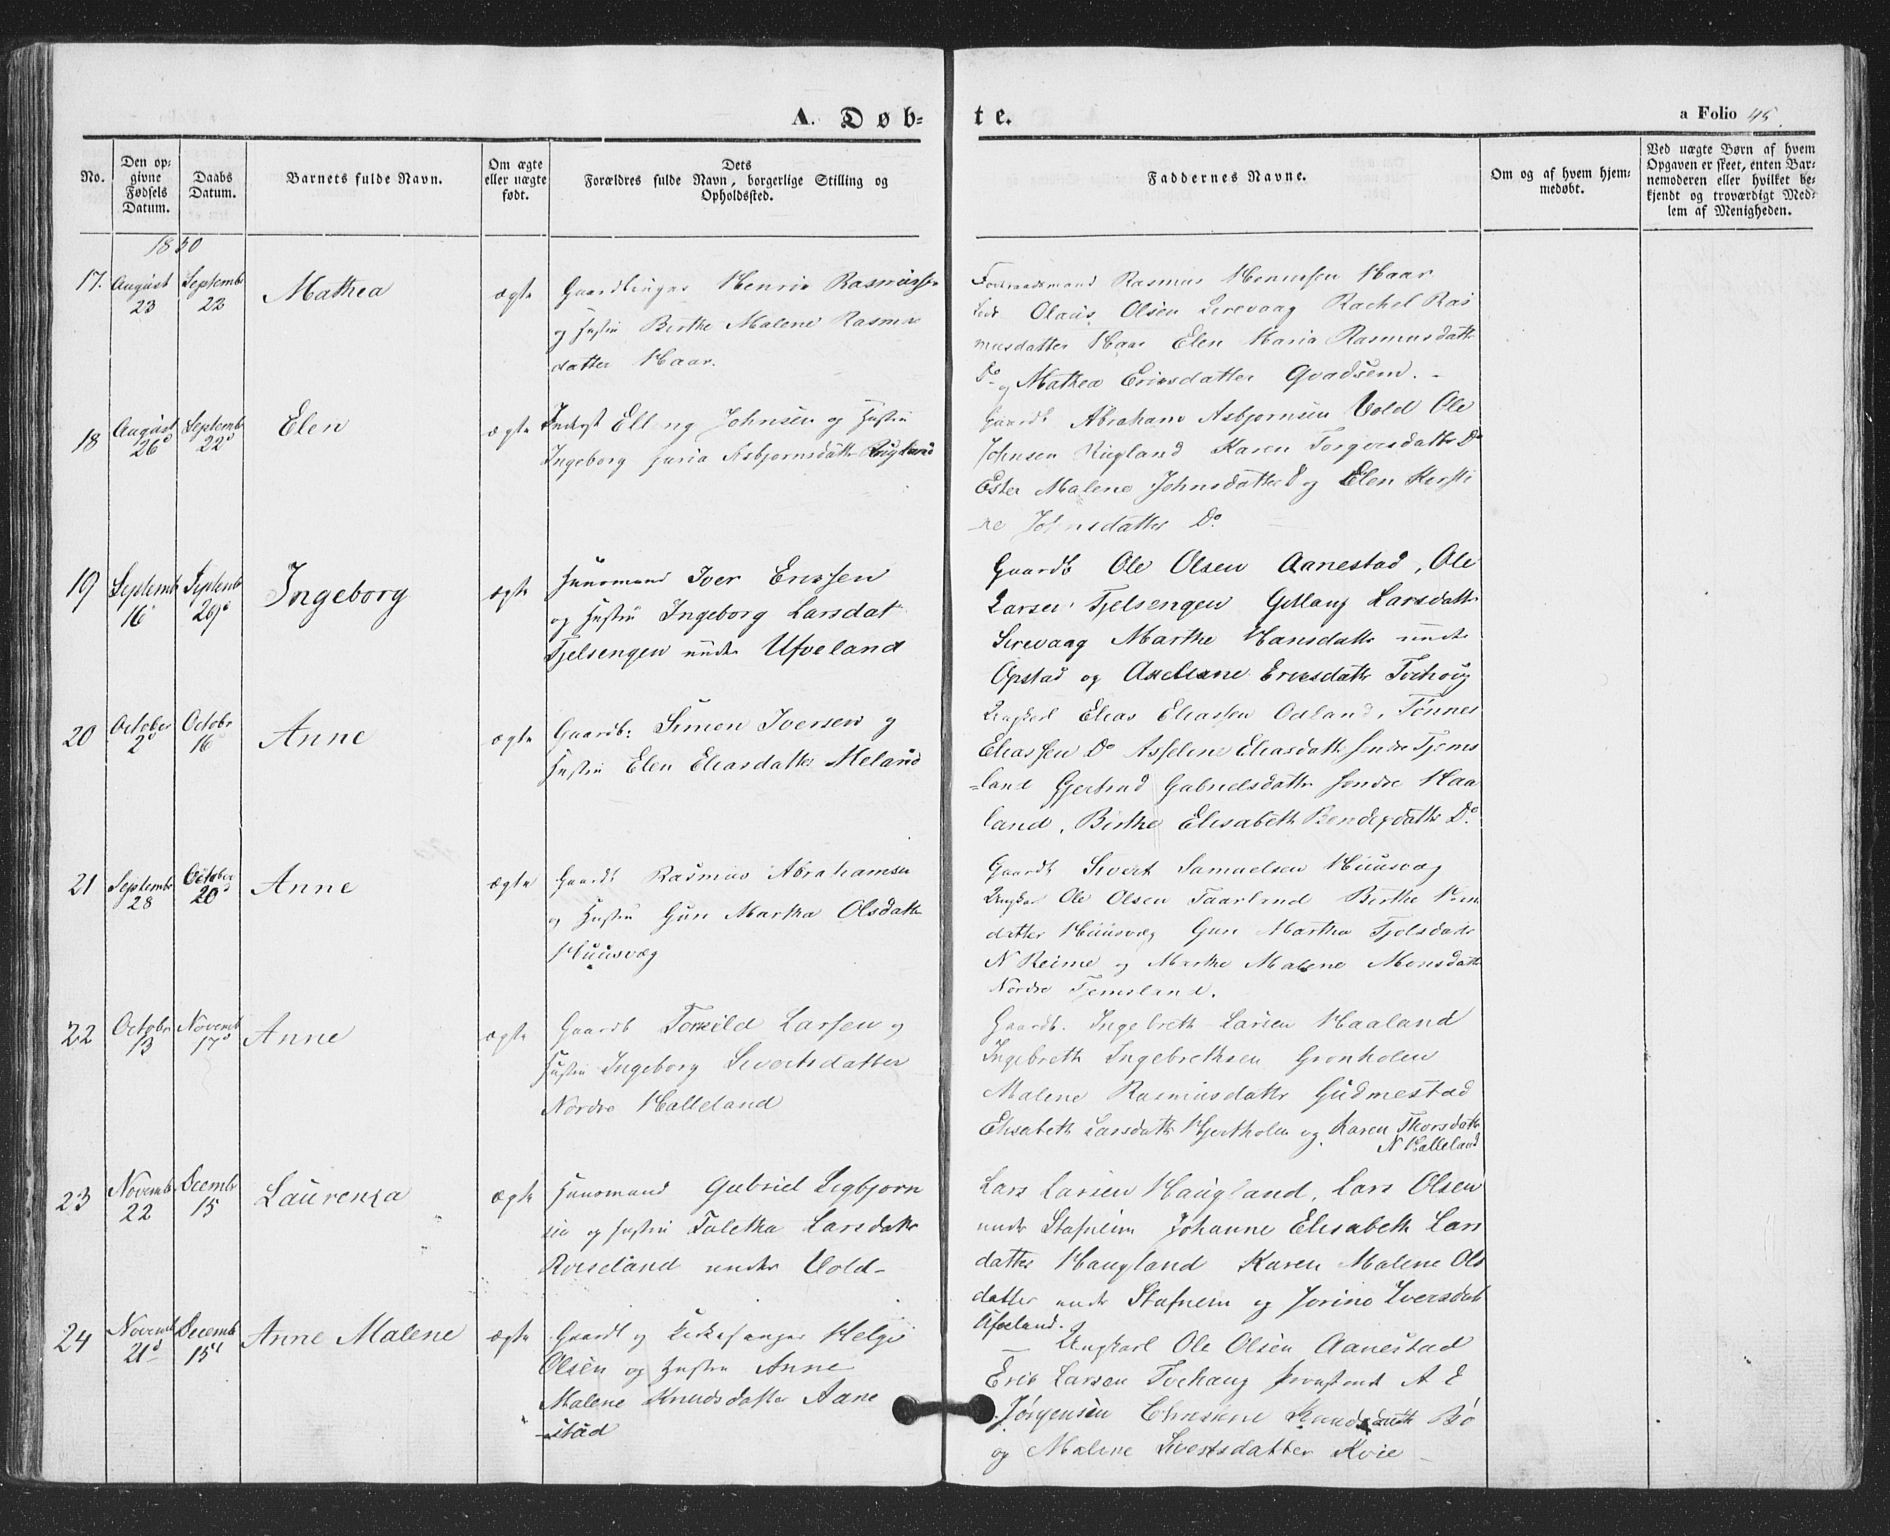 A. Døb-
te.
a Folio 45.
No.
Den op-
givne
Fødsels
Datum.
Daabs
Datum.
Barnets fulde Navn.
Om ægte
eller uægte
født.
Dets
Forældres fulde Navn, borgerlige Stilling og
Opholdssted.
Faddernes Navne.
Om og af hvem hjem-
medøbt.
Ved uægte Børn af hvem
Opgaven er skeet, enten Bar-
nemoderen eller hvilket be-
kjendt og troværdigt Med-
lem af Menigheden.
1850
17. August 23 Septemb 22 Mathea ægte
Gaardbruger Henrik Rasmussen
og Hustru Birthe Malene Rasmus
datter Haar.
Forligelsesmand Rasmus Haar
Olaus Olsen Sirevaag Rachel Ras
musdatter Haar Elen Maria Rasmusdatter
Do og Mathea Ericsdatter Qvadsem.
18 August 26 Septemb 22 Elen ægte
Inderst Elling Johnsen og Hustru
Ingeborg Asbjørnsdatter Rugland
Gaardb Abraham Asbjørnsen Vold Ole
Johnsen Rugland Karen Torgersdatter Do
Ester Malene Johnsdatter Do og Elen Kirsti
ne Johnsdatter Do
19 Septemb 16 Septemb 29 Ingeborg ægte
Huusmand Iver Ericksen
og Hustru Ingeborg Larsdat
Tjelsengen under Ufveland
Gaardb Ole Olsen Aanestad, Ole
Larsen Tjelsengen Larsdatter
Sirevaag Marthe Hansdatter under
Opstad og Axeliane Ericsdatter Tvihoug
20 October 2 Octobr 16 Anne ægte
Gaardb: Simon Iversen og
Hustru Elen Eliasdatter Meland
Ungkarl Elias Eliassen Odland, Tønnes
Eliassen Do Asseline Eliasdatter søndre Tjems
land Gjertrud Gabrielsdatter søndre Haa
land, Birthe Elisabeth Do
21 Septembr 28 October 20 Anne ægte
Gaardb Rasmus Abrahamsen
og Hustru Gun Martha Olsdatter
Huusvæg
Gaardb Sivert Samuelsen Huusvæg
Ungkar Ole Olsen Taarland Birthe
datter Huusvæg Gun Martha Tjelsdatter
N Reime og Marthe Malene Monsdatter
Nordre Tjemsland.
22 Octobr 13 Novemb 17 Anne ægte
Gaardb Torkild Larsen og
Hustru Ingeborg Sivertsdatter
Nordre Halleland
Gaardb. Ingebreth Larsen Haaland
Ingebreth Ingebrethsen Grønholen
Malene Rasmusdatter Gudmestad
Elisabeth Larsdatter Hjertholen og Karen Thorsdatter
N Halleland
23 Novemb 22 Decemb 15 Laurenza ægte
Huusmand Gabriel Sigbjørn
sen og Hustru Taletha Larsdatter
Roiseland under Vold
Lars Larsen Haugland, Lars Olsen
under Stafneim Johanne Elisabeth Lars
datter Haugland Karen Malene Ols
datter under Stafneim og Jorine Iversdatter
Ufveland.
24 Novemb 21 Decemb 15 Anne Malene ægte
Gaardb og Kirkesanger Helge
Olsen og Hustru Anne
Malene Knudsdatter Aane
stad
Ungkarl Ole Olsen Aanestad
Erik Larsen Tvihaug A E
Jørgensen Christine Knudsdatt Bø
og Malene Sivertsdatter Kvie